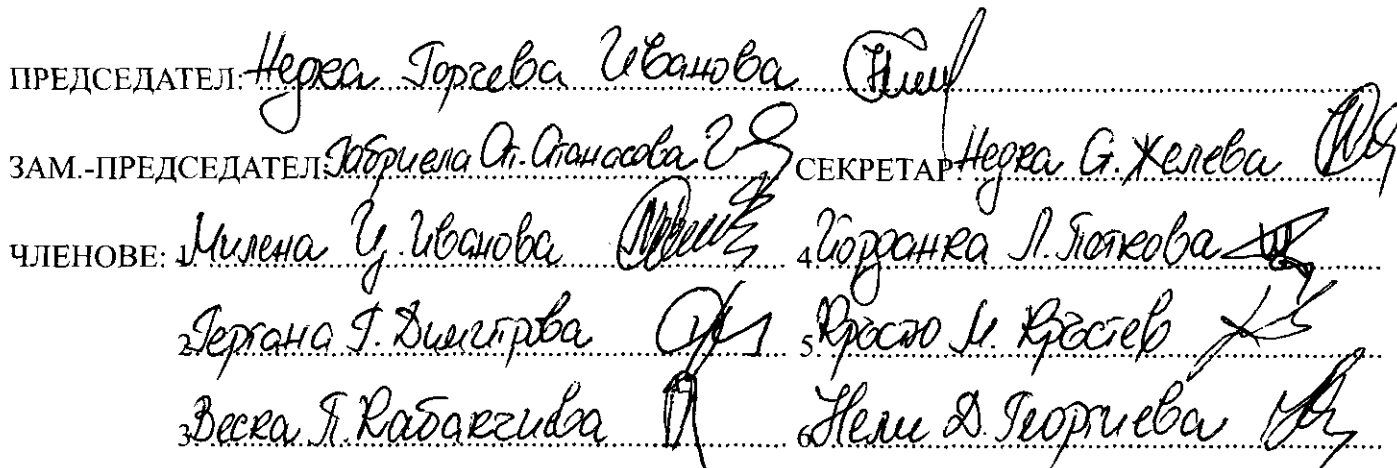 ПРЕДСЕДАТЕЛ: Недка Горчева Иванова
ЗАМ.-ПРЕДСЕДАТЕЛ: Габриела Ст. Атанасова СЕКРЕТАР: Недка С. Желева
ЧЛЕНОВЕ: 1. Милена Ц. Иванова 4. Йорданка Л. Поткова
2. Гергана Г. Димитрова 5. Кръстю М. Кръстев
3. Веска П. Кабакчиева 6. Нели Д. Георгиева